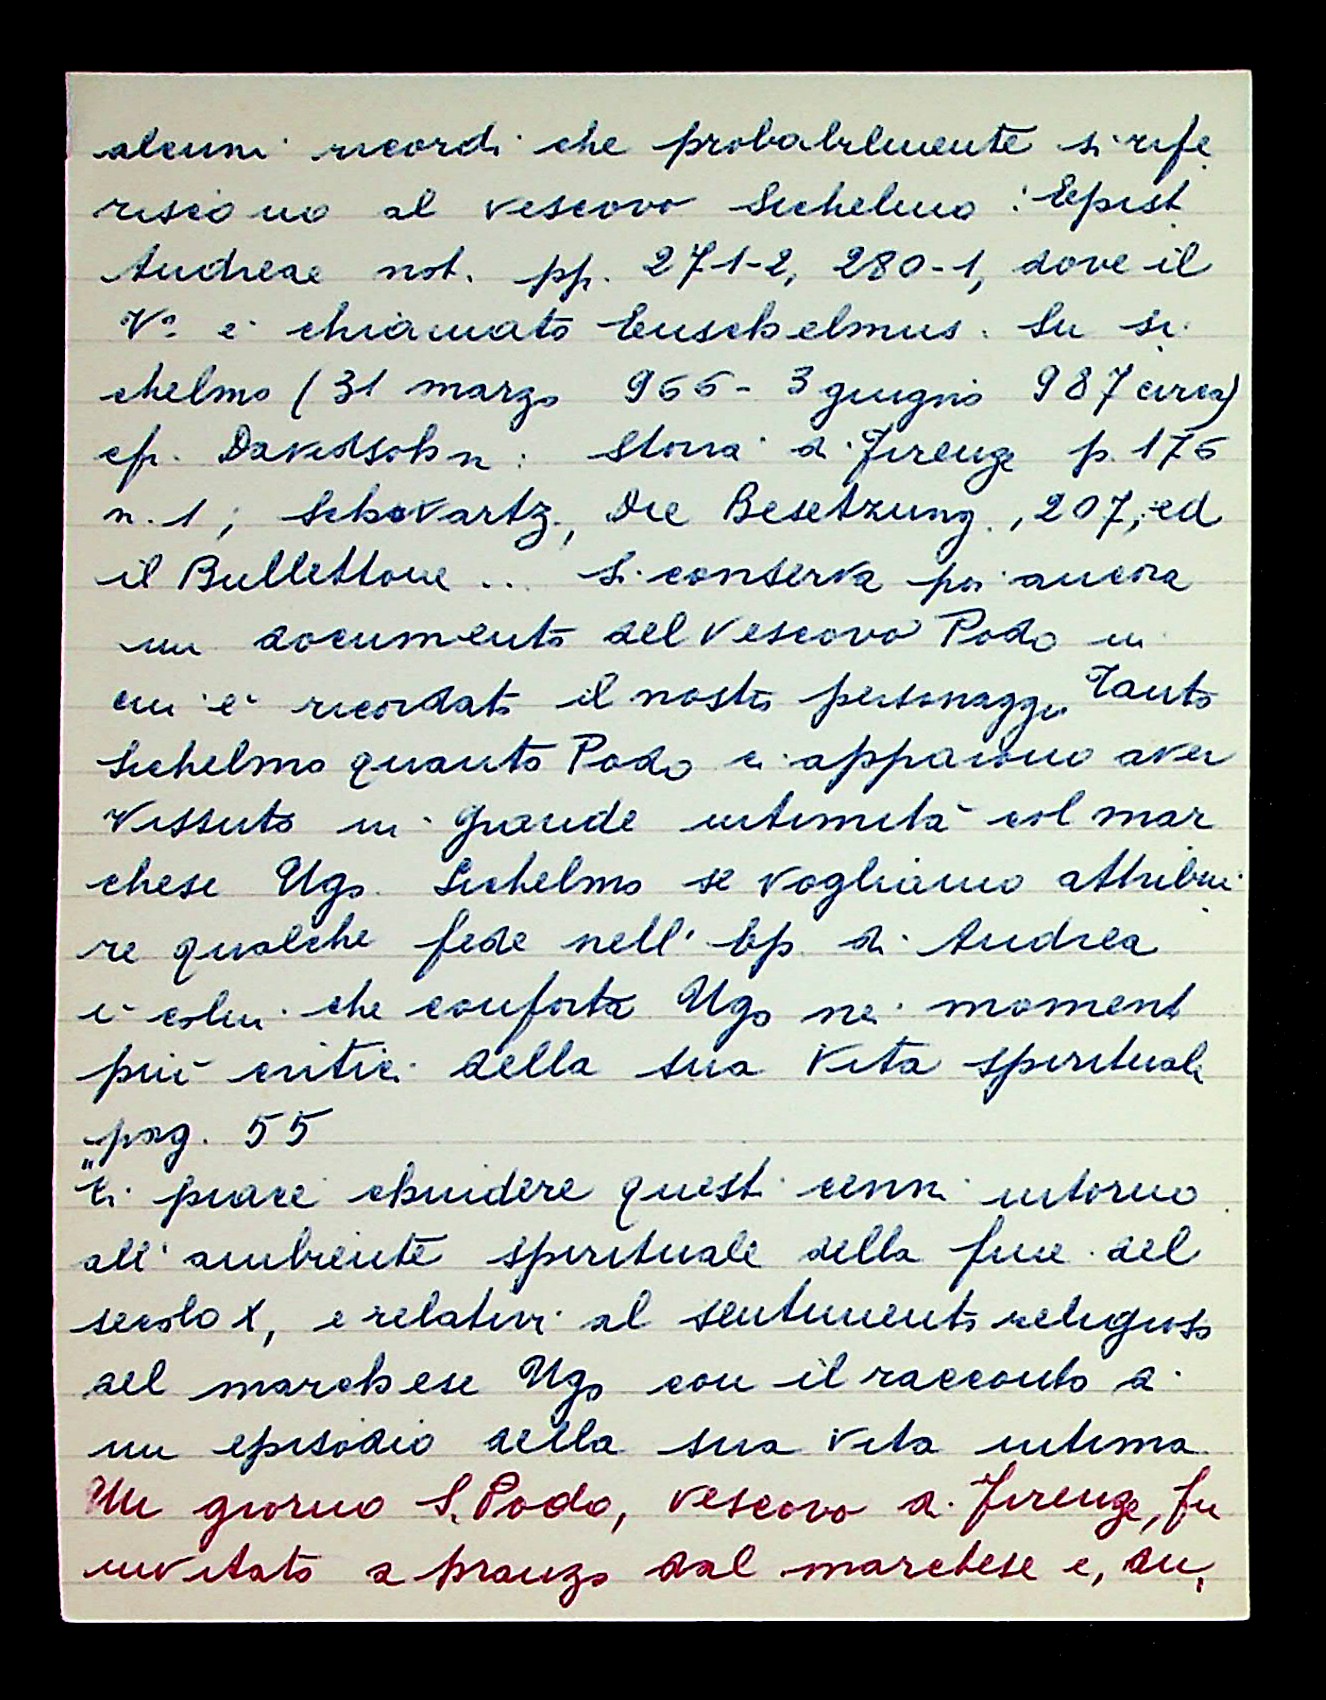 alcuni ricordi che probabilmente si rife
riscono al vescovo Sichelmo: Epist
Andreae not. pp. 271-2, 280-1, dove il
Vo è chiamato Euschelmus. Su Si
chelmo (31 marzo 966 - 3 giugno 987 circa)
cfr. Davidsohn: Storia di Firenze p. 176
n. 1; Schwartz, Die Besetzung., 207, ed
il Bullettone ... Si conserva poi ancora
un documento del vescovo Podo in
cui è ricordato il nostro personaggio Tanto
Sichelmo quanto Podo ci appaiono aver
vissuto in grande intimità col mar
chese Ugo. Sichelmo se vogliamo attribui
re qualche fede nell' Ep. di Andrea
è colui che conforta Ugo nei momenti
più critici della sua vita spirituale
pag. 55
"Ci piace chiudere questi cenni intorno
all'ambiente spirituale della fine del
secolo X, e relativi al sentimento religioso
del marchese Ugo con il racconto di
un episodio della sua vita intima
Un giorno S. Podo, vescovo di Firenze, fu
invitato a pranzo dal marchese e, du,